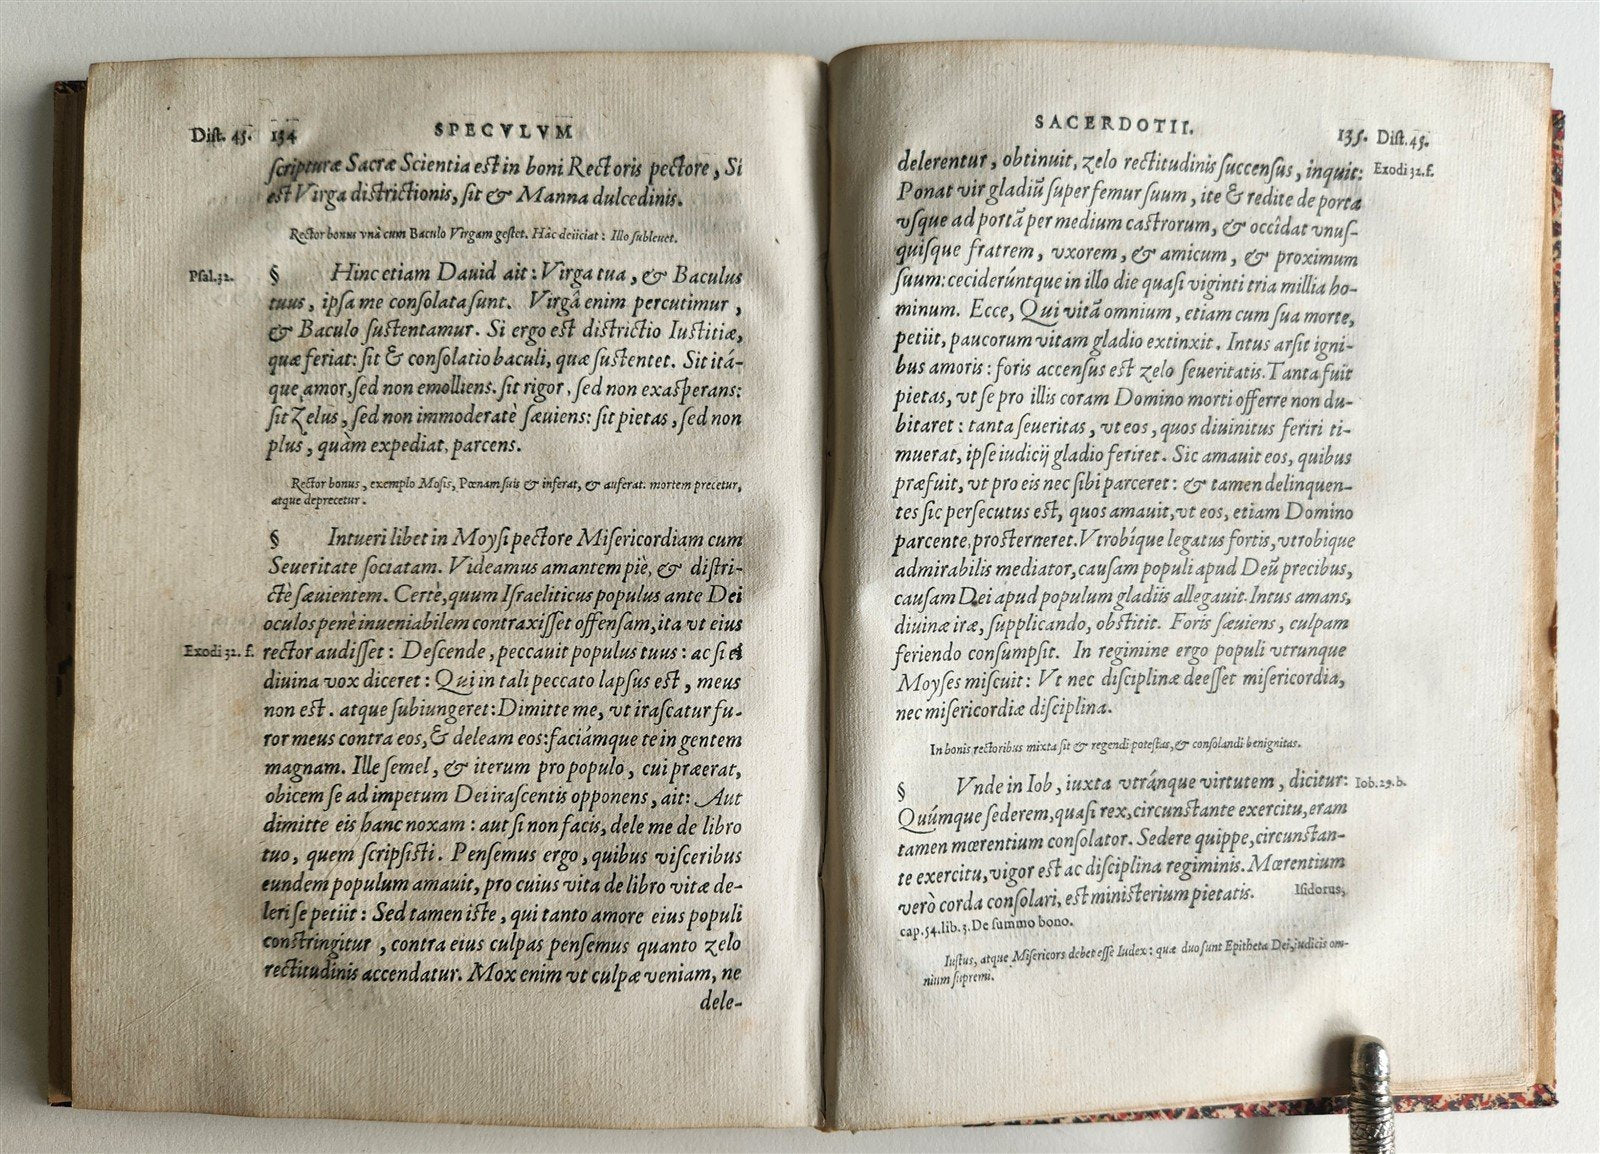 Dist. 45. 134 SPECVLVM
scripturæ Sacræ Scientia est in boni Rectoris pectore, Si
est Virga districtionis, sit & Manna dulcedinis.
Rector bonus vnà cum Baculo Virgam gestet. Hâc deiiciat: Illo subleuet.
Psal.22.
§ Hinc etiam Dauid ait: Virga tua, & Baculus
tuus, ipsa me consolata sunt. Virgâ enim percutimur,
& Baculo sustentamur. Si ergo est districtio Iustitiæ,
quæ feriat: sit & consolatio baculi, quæ sustentet. Sit itá-
que amor, sed non emolliens. sit rigor, sed non exasperans:
sit Zelus, sed non immoderatè sæuiens: sit pietas, sed non
plus, quàm expediat, parcens.
Rector bonus, exemplo Mosis, Pœnam suis & inferat, & auferat. mortem precetur,
atque deprecetur.
§ Intueri libet in Moysi pectore Misericordiam cum
Seueritate sociatam. Videamus amantem piè, & distri-
ctè sæuientem. Certè, quum Israeliticus populus ante Dei
oculos penè inueniabilem contraxisset offensam, ita vt eius
Exodi 32. f. rector audisset: Descende, peccauit populus tuus: ac si ei
diuina vox diceret: Qui in tali peccato lapsus est, meus
non est. atque subiungeret: Dimitte me, vt irascatur fu-
ror meus contra eos, & deleam eos: faciámque te in gentem
magnam. Ille semel, & iterum pro populo, cui præerat,
obicem se ad impetum Dei irascentis opponens, ait: Aut
dimitte eis hanc noxam: aut si non facis, dele me de libro
tuo, quem scripsisti. Pensemus ergo, quibus visceribus
eundem populum amauit, pro cuius vita de libro vitæ de-
leri se petiit: Sed tamen iste, qui tanto amore eius populi
constringitur, contra eius culpas pensemus quanto zelo
rectitudinis accendatur. Mox enim vt culpæ veniam, ne
dele-
SACERDOTII. 135. Dist. 45.
delerentur, obtinuit, zelo rectitudinis succensus, inquit: Exodi 32. f.
Ponat vir gladiũ super femur suum, ite & redite de porta
vsque ad portã per medium castrorum, & occidat vnus-
quisque fratrem, vxorem, & amicum, & proximum
suum: cecideruntque in illo die quasi viginti tria millia ho-
minum. Ecce, Qui vitã omnium, etiam cum sua morte,
petiit, paucorum vitam gladio extinxit. Intus arsit igni-
bus amoris: foris accensus est zelo seueritatis. Tanta fuit
pietas, vt se pro illis coram Domino morti offerre non du-
bitaret: tanta seueritas, vt eos, quos diuinitus feriri ti-
muerat, ipse iudicij gladio feriret. Sic amauit eos, quibus
præfuit, vt pro eis nec sibi parceret: & tamen delinquen-
tes sic persecutus est, quos amauit, vt eos, etiam Domino
parcente, prosterneret. Vtrobíque legatus fortis, vtrobique
admirabilis mediator, causam populi apud Deũ precibus,
causam Dei apud populum gladiis allegauit. Intus amans,
diuinæ iræ, supplicando, obstitit. Foris sæuiens, culpam
feriendo consumpsit. In regimine ergo populi vtrunque
Moyses miscuit: Vt nec disciplinæ deesset misericordia,
nec misericordiæ disciplina.
In bonis rectoribus mixta sit & regendi potestas, & consolandi benignitas.
§ Vnde in Iob, iuxta vtránque virtutem, dicitur: Iob.29.b.
Quúmque sederem, quasi rex, circunstante exercitu, eram
tamen mœrentium consolator. Sedere quippe, circunstan-
te exercitu, vigor est ac disciplina regiminis. Mœrentium
verò corda consolari, est ministerium pietatis. Isidorus,
cap.54.lib.3.De summo bono.
Iustus, atque Misericors debet esse Iudex: quæ duo sunt Epitheta Dei, iudicis om-
nium supremi.